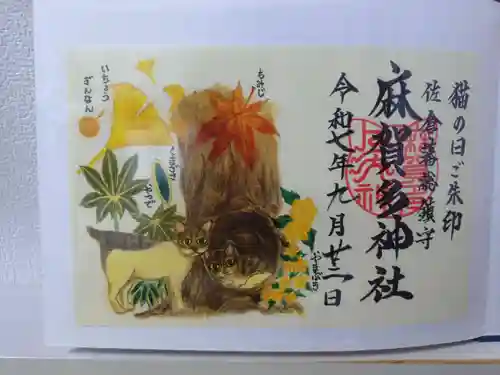 猫の日ご朱印
佐倉藩総鎮守
麻賀多神社
令和七年九月廿二日
もみじ
いちょう
ぎんなん
やつで
やまぶき